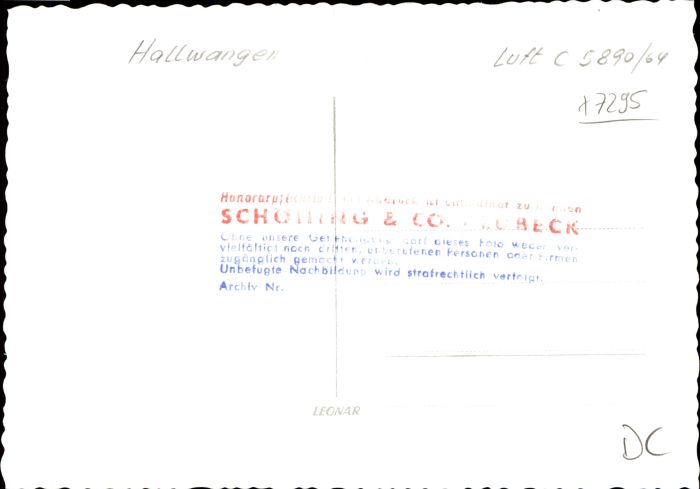 Hallwangen
Luft C 5890/64
x7295
Honorarpflichtig! ist unbedingt zu
SCHÖNING & CO. · LÜBECK
Ohne unsere Genehmigung darf dieses Foto weder ver-
vielfältigt noch dritten, unberufenen Personen oder Firmen
zugänglich gemacht werden.
Unbefugte Nachbildung wird strafrechtlich verfolgt.
Archiv Nr.
LEONAR
DC